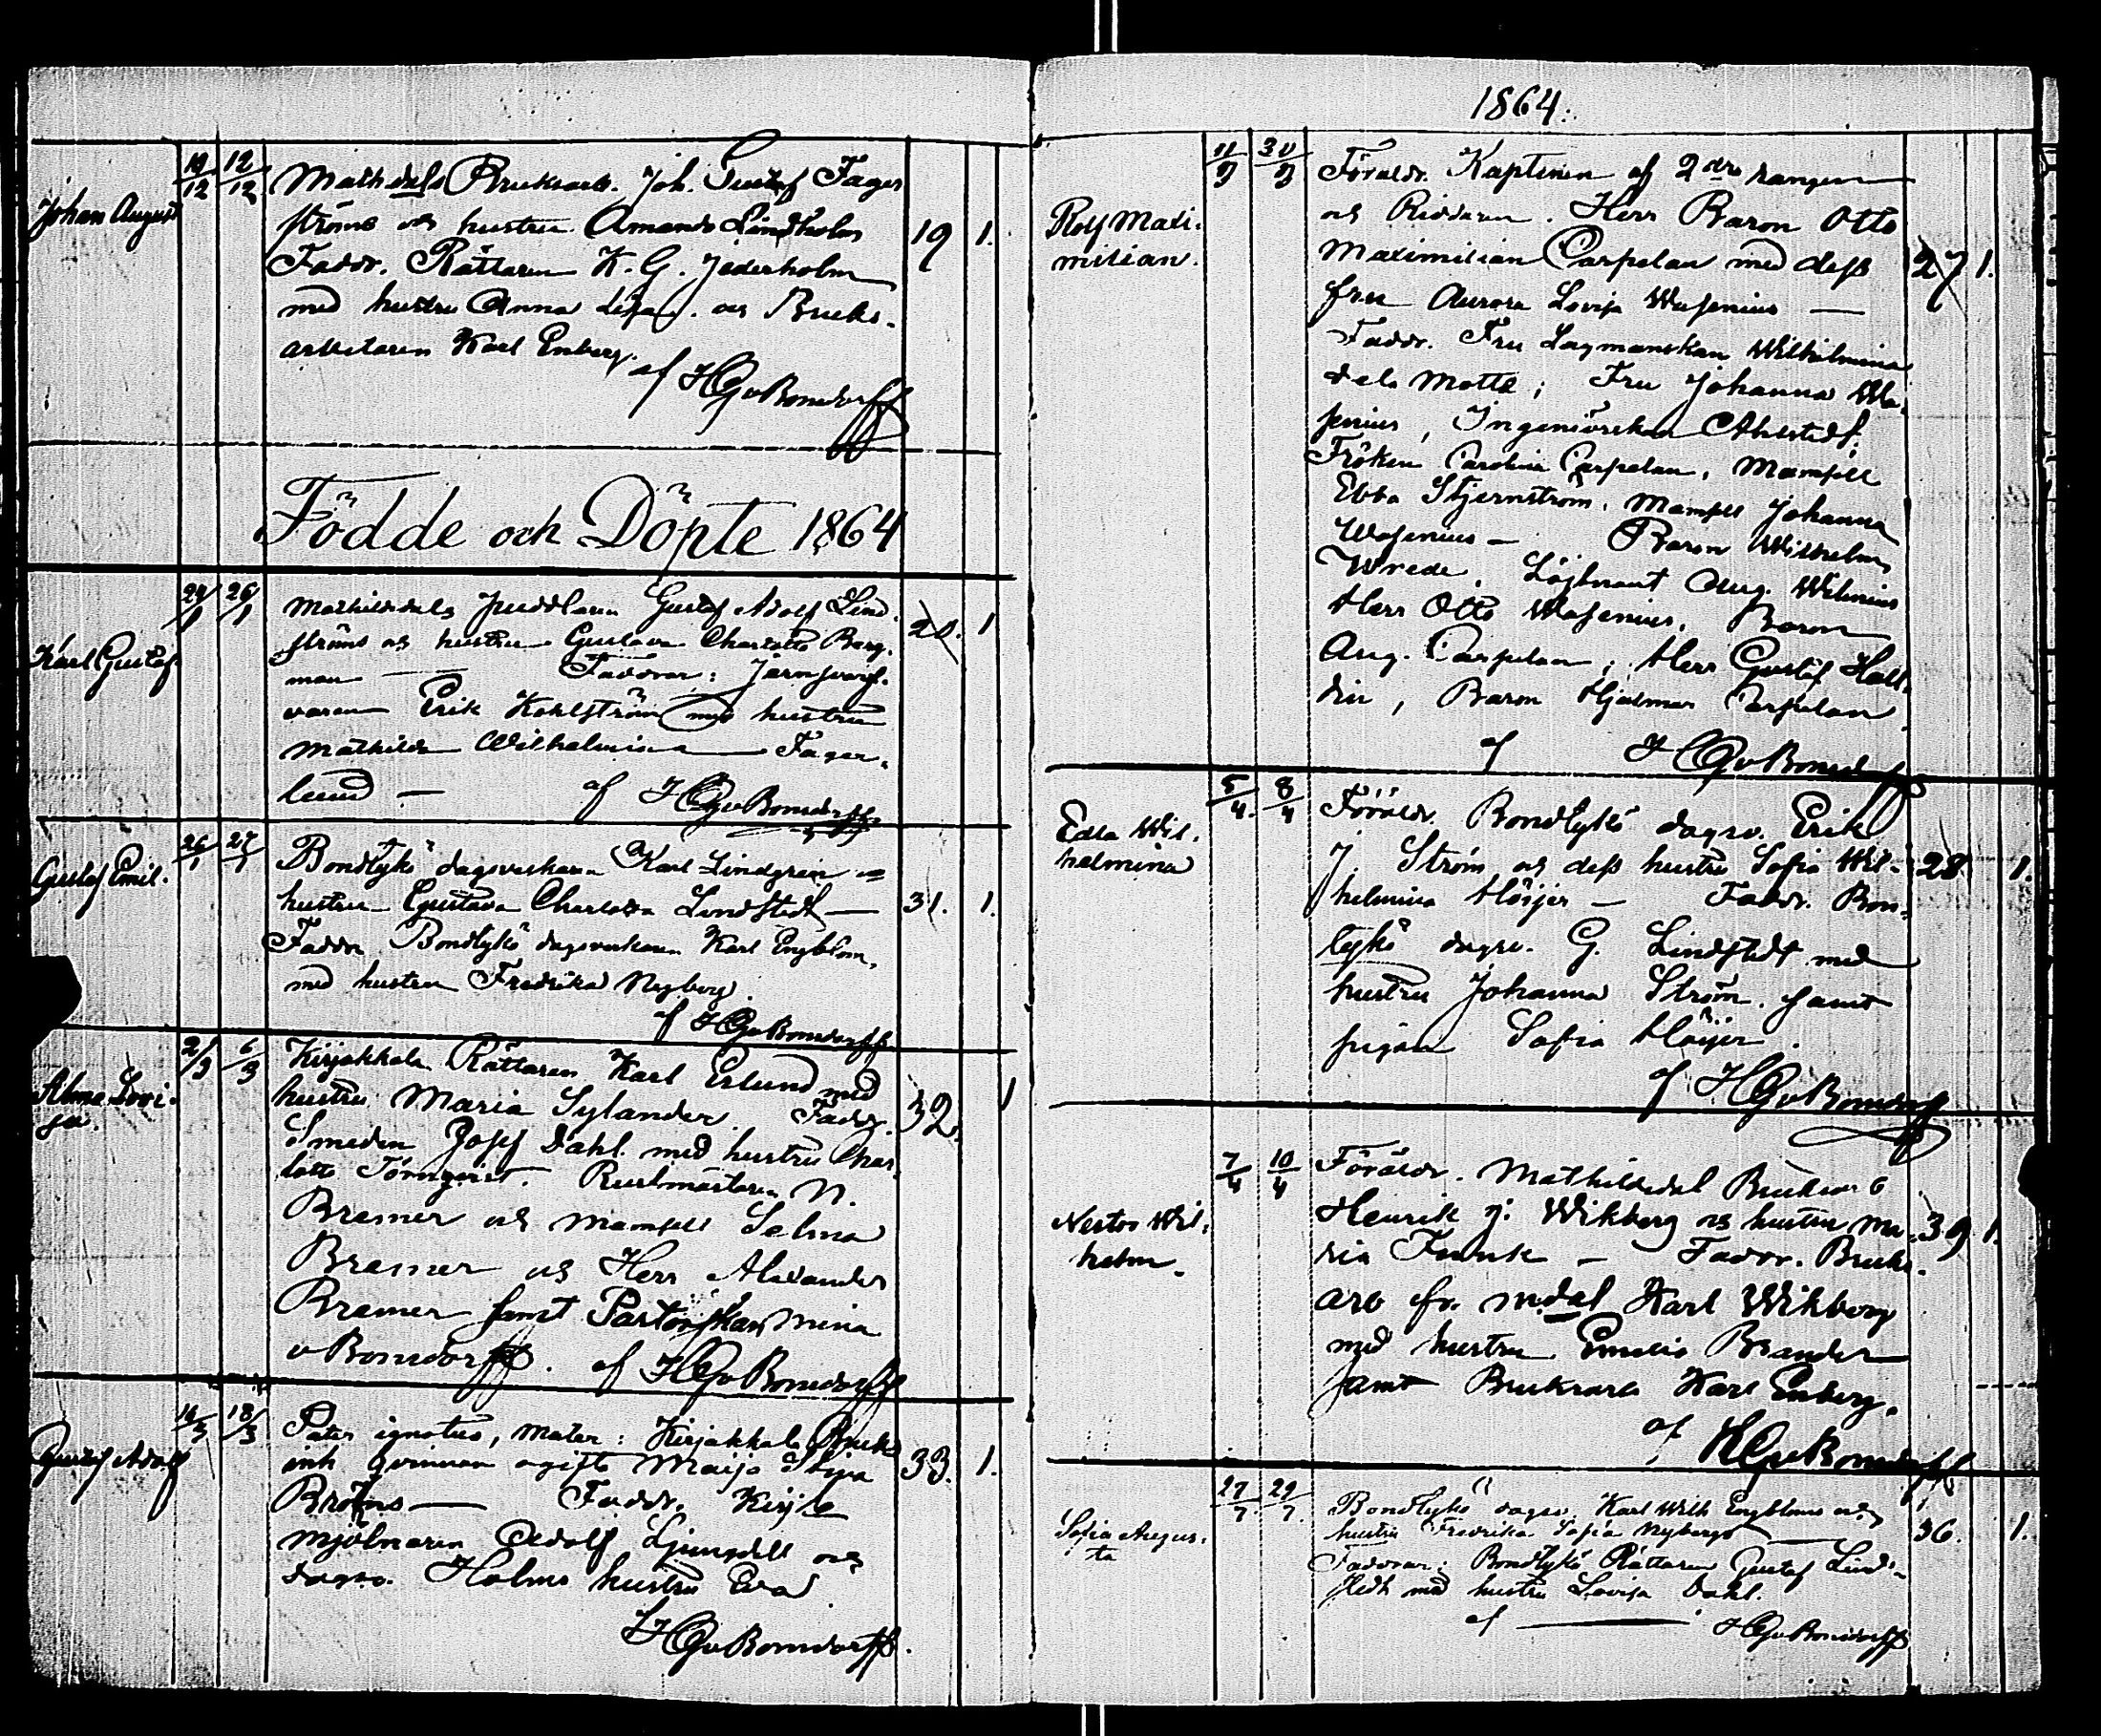 Johan August
10/12 12/12
Mathdals Bruksarb. Joh. Gustaf Fager
ströms och hustru Amanda Lindholm
Faddr. Rättaren K. G. Jederholm
med hustru Anna Lisa och Bruks-
arbetaren Karl Enberg.
af HGvBonsdorff
19 1.
Födde och Döpte 1864
Karl Gustaf.
24/1 26/1
Mathildedals Puddlaren Gustaf Adolf Lind
ströms och hustru Gustava Charlotta Berg-
man — Faddrar: Jern
varen Erik Kohlström med hustru
Mathilda Wilhelmina Fager-
lund — af HGvBonsdorff
20. 1
Gustaf Emil.
26/1 27/1
Bondtykö dagsverkaren Karl Lindgren o
hustru Gustava Charlotta Lindstedt —
Faddr. Bondtykö dagsverkaren Karl Engblom,
med hustru Fredrika Nyberg.
af HGvBonsdorff
31. 1.
Alma Lovi-
sa.
2/3 6/3
Kirjakkala Rättaren Karl Erlund med
hustru Maria Sylander. Faddr.
Smeden Josef Dahl med hustru Char-
lotta Törnqvist. Rustmästaren N.
Bremer och Mamsell Selma
Bremer och Herr Alexander
Bremer samt Pastorskan Mina
v Bonsdorff. af HGvBonsdorff
32. 1
Gustaf Adolf
16/3 18/3
Pater ignotus, Mater: Kirjakkala Bruks
inh qvinnan ogifta Maija Stina
Bröms — Faddr. Kirjkla
mjölnaren Adolf Ljungdell och
dagsv. Holms hustru Eva
HGvBonsdorff.
33. 1.
1864.
Rolf Maxi-
milian.
11/3 30/3
Föräldr. Kaptenen af 2dra rangen
och Riddaren. Herr Baron Otto
Maximilian Carpelan med dess
fru Aurora Lovisa Wasenius —
Faddr. Fru Lagmanskan Wilhelmina
dela Motte; Fru Johanna Wa-
senius, Ingeniörskan Ahlstedt.
Fröken Carolina Carpelan, Mamsell
Ebba Stjernström, Mamsell Johanna
Wasenius — Baron Wilhelm
Wrede, Löjtnant Aug. Welenius
Herr Otto Wasenius, Baron
Aug. Carpelan; Herr Gustaf Hall-
din, Baron Hjalmar Carpelan
af HGvBonsdorff
27 1.
Edla Wil-
helmina
5/4. 8/4
Föräldr. Bondtykö dagsv. Erik
J Ström och dess hustru Sofia Wil-
helmina Höijer — Faddr. Bon-
tykö dagsv. G. Lindstedt med
hustru Johanna Ström. samt
pigan Sofia Höijer.
af HGvBonsdorff
28 1.
Nestor Wil-
helm.
7/4 10/4
Föräldr. Mathildedal Bruksarb
Henrik J. Wikberg och hustru Ma-
ria Funk — Faddr. Bruks-
arb fr. Mdal Karl Wikberg
med hustru Emelie Brander
samt Bruksarb Karl Enberg.
af HGvBonsdorff
39 1.
Sofia Augus-
ta
27/7. 29/7.
Bondtykö dagsv. Karl Wilh Engbloms och
hustru Fredrika Sofia Nybergs —
Faddrar: Bondtykö Rättaren Gustaf Lind-
stedt med hustru Lovisa Dahl.
af — HGvBonsdorff
36. 1.